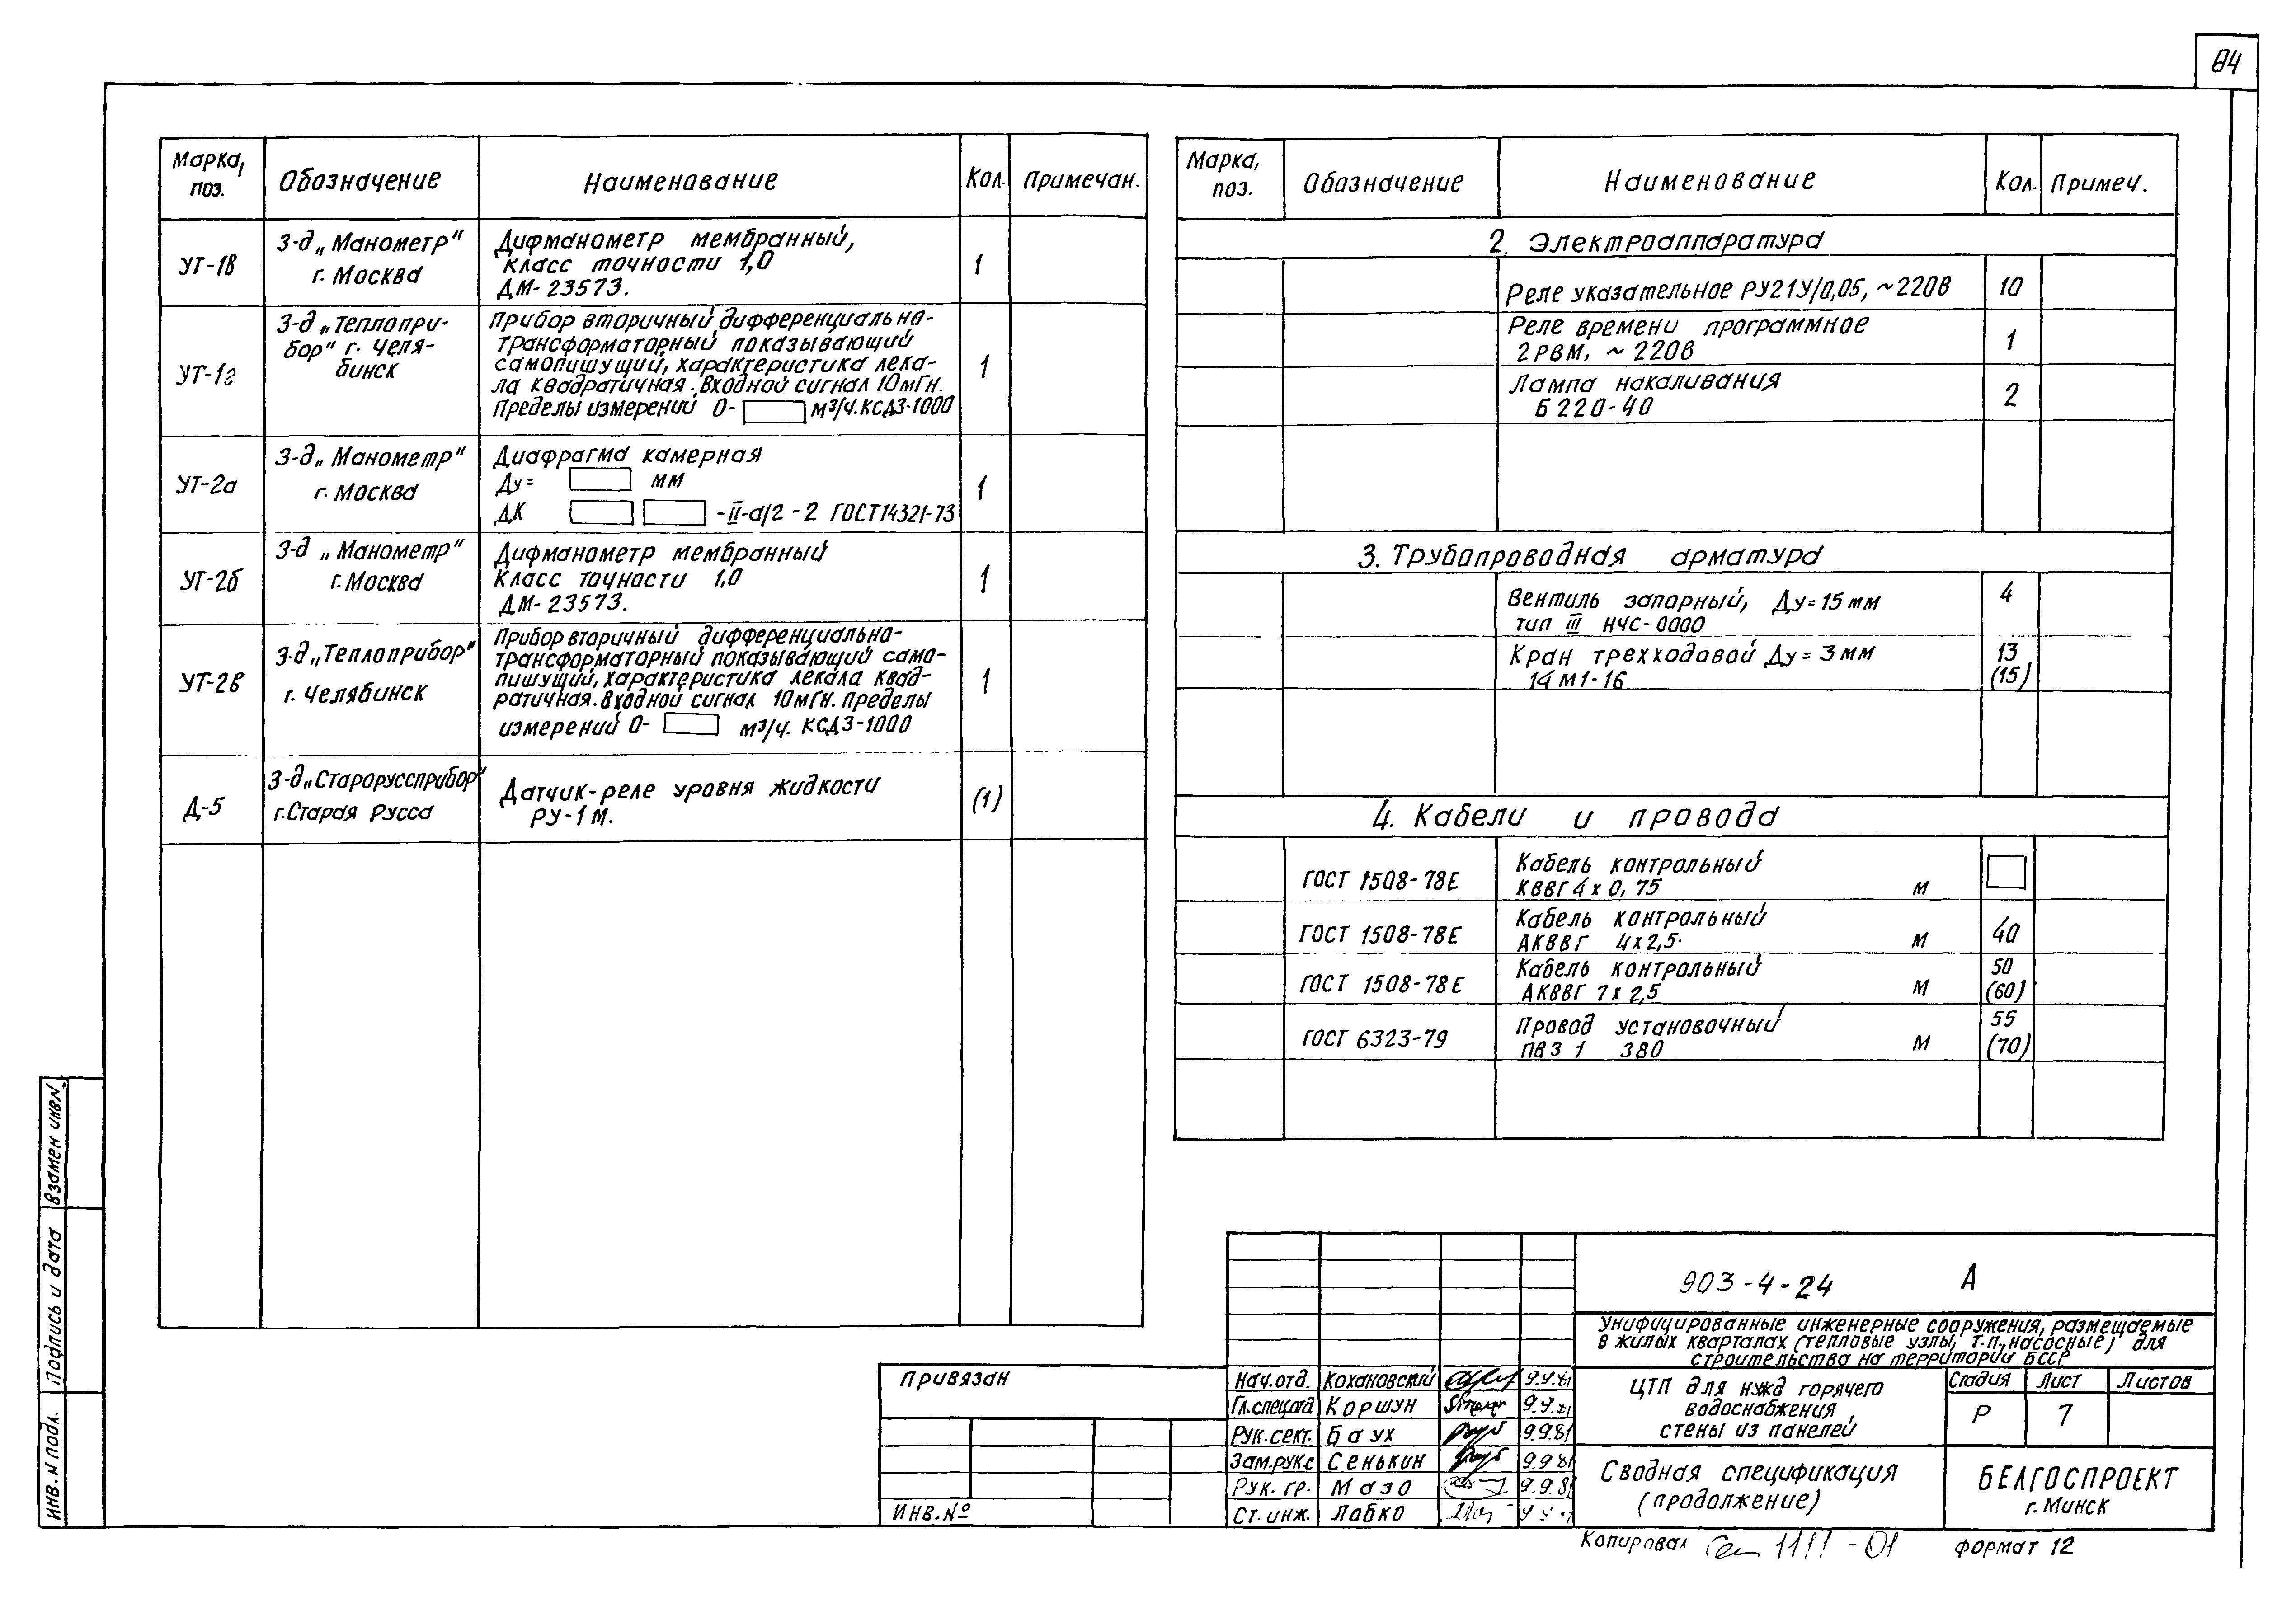 84
Марка, поз. Обозначение Наименование Кол. Примечан.
УТ-1в З-д „Манометр" г. Москва
Дифманометр мембранный,
класс точности 1,0
ДМ-23573.
1
УТ-1г З-д „Теплопри-
бор" г. Челя-
бинск
Прибор вторичный дифференциально-
трансформаторный показывающий
самопишущий, характеристика лека-
ла квадратичная. Входной сигнал 10мГн.
Пределы измерений 0- м³/ч. КСД3-1000
1
УТ-2а З-д „Манометр"
г. Москва
Диафрагма камерная
Ду= мм
ДК -II-а/2-2 ГОСТ14321-73
1
УТ-2б З-д „Манометр"
г. Москва
Дифманометр мембранный
Класс точности 1,0
ДМ-23573.
1
УТ-2в З-д „Теплоприбор"
г. Челябинск
Прибор вторичный дифференциально-
трансформаторный показывающий само-
пишущий, характеристика лекала квад-
ратичная. Входной сигнал 10мГн. Пределы
измерений 0- м³/ч. КСД3-1000
1
Д-5 З-д „Старорусприбор"
г. Старая Русса
Датчик-реле уровня жидкости
РУ-1М.
(1)
Марка, поз. Обозначение Наименование Кол. Примеч.
2. Электроаппаратура
Реле указательное РУ21У/0,05, ~220В 10
Реле времени программное
2РВМ, ~ 220В
1
Лампа накаливания
Б 220-40
2
3. Трубопроводная арматура
Вентиль запорный, Ду=15мм
тип III НЧС-0000
4
Кран трехходовой Ду=3мм
14М1-16
13
(15)
4. Кабели и провода
ГОСТ 1508-78Е Кабель контрольный
КВВГ 4х0,75 м
ГОСТ 1508-78Е Кабель контрольный
АКВВГ 4х2,5. м 40
ГОСТ 1508-78Е Кабель контрольный
АКВВГ 7х2,5 м
50
(60)
ГОСТ 6323-79 Провод установочный
ПВ3 1 380 м
55
(70)
Взамен инв.N
Подпись и дата
Инв.N подл.
Привязан
Инв.№
903-4-24 А
Унифицированные инженерные сооружения, размещаемые
в жилых кварталах (тепловые узлы, т.п., насосные) для
строительства на территории БССР
Нач.отд. Кохановский
Гл.спец.отд Коршун
Рук.сект. Баух 9.9.81
Зам.рук.с Сенькин 9.9.81
Рук. гр. Мазо 9.9.81
Ст. инж. Лабко
ЦТП для нужд горячего
водоснабжения
стены из панелей
Стадия Лист Листов
Р 7
Сводная спецификация
(продолжение)
БЕЛГОСПРОЕКТ
г. Минск
Копировал
формат 12